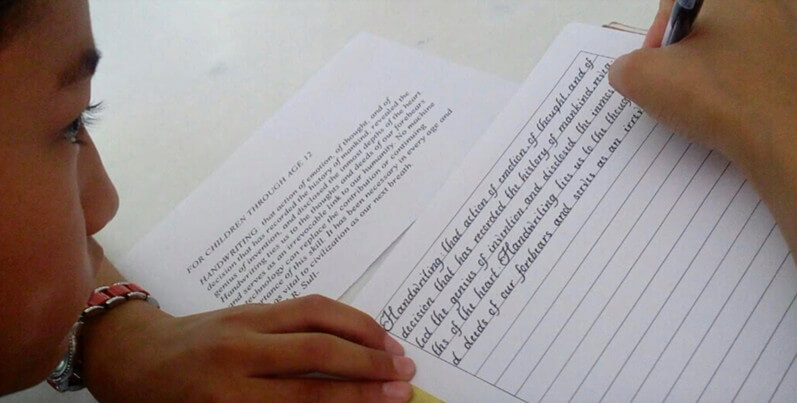 FOR CHILDREN THROUGH AGE 12
HANDWRITING that action of emotion, of thought, and of
decision that has recorded the history of mankind, revealed the
genius of invention, and disclosed the inmost depths of the heart
Handwriting ties us to the thoughts and deeds of our forebears
and serves as an irrevocable link to our humanity. No machine
technology can replace the contribution or continuing
of this skill. It has been necessary in every age and
vital to civilization as our next breath
R. Sull-
Handwriting, that action of emotion, of thought, and of
decision that has recorded the history of mankind,
led the genius of invention and disclosed the
ths of the heart. Handwriting ties us to the
d deeds of our forebears and serves as an